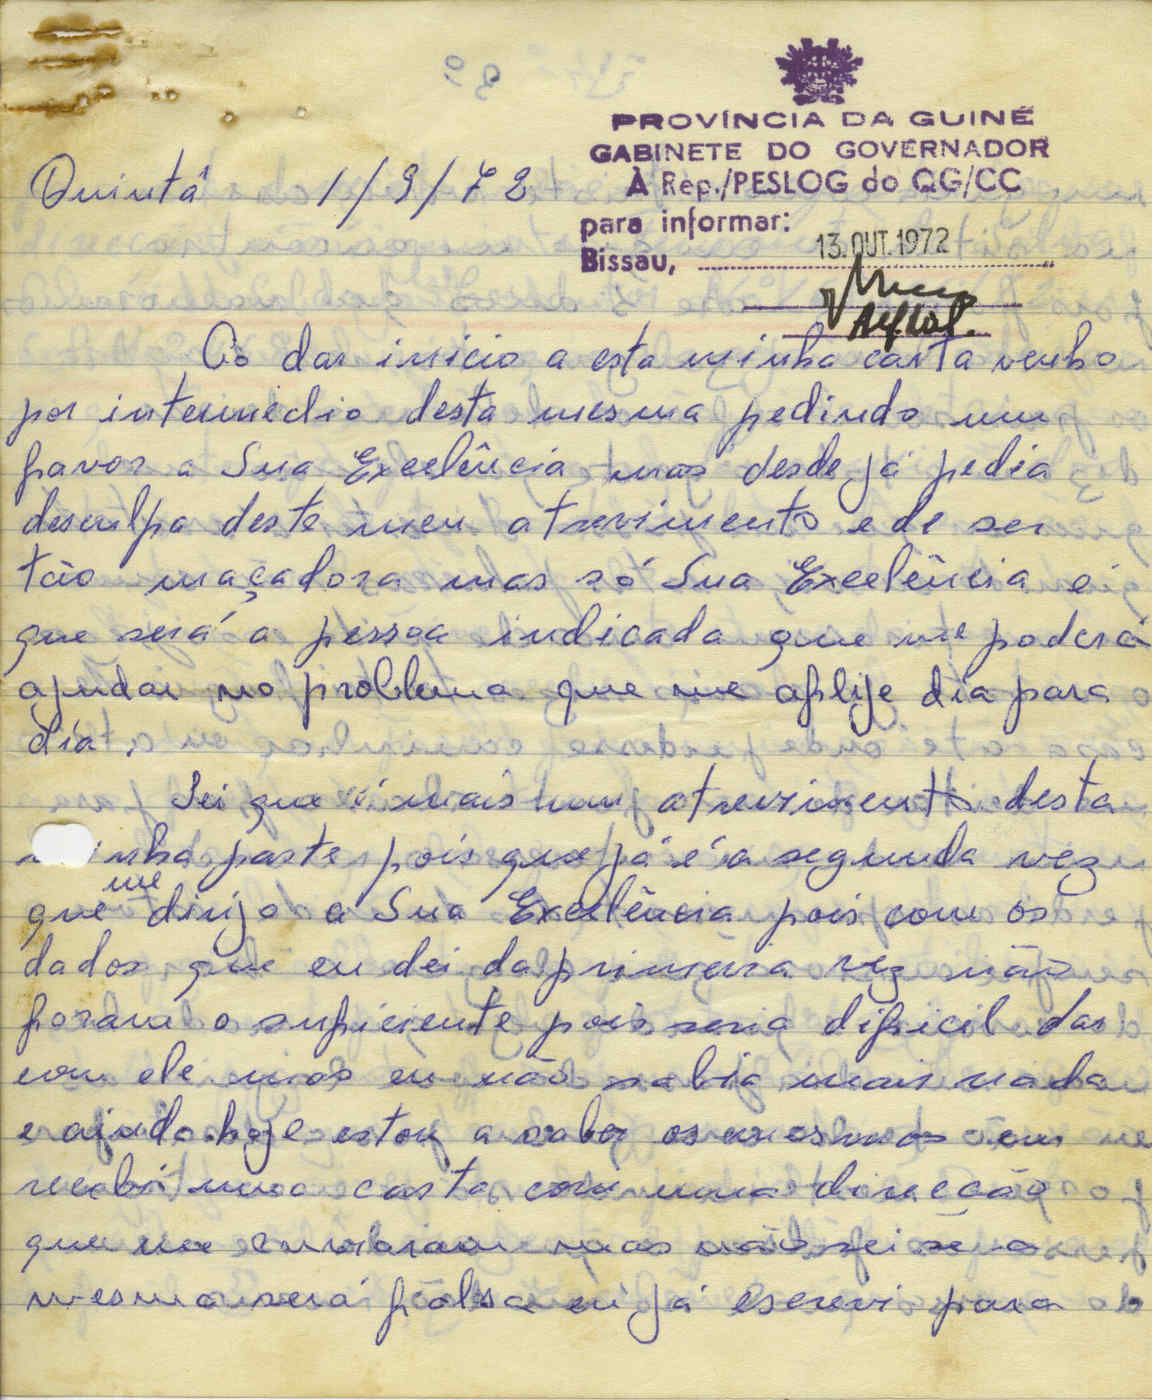 PROVÍNCIA DA GUINÉ
GABINETE DO GOVERNADOR
À Rep./PESLOG do QG/CC
para informar:
Bissau, 13. OUT. 1972
Quintã 1/9/72
Ao dar inicio a esta minha carta venho
por intermedio desta mesma pedindo um
favor a Sua Excelência mas desde já pedia
desculpa deste meu atrevimento e de ser
tão maçadora mas só Sua Excelência é
que será a pessoa indicada que me poderá
ajudar no problema que me aflije dia para
dia.
Sei que é mais hum atrevimento desta
minha parte pois que já é a segunda vez
que me dirijo a Sua Excelência pois com os
dados que eu dei da primeira vez não
foram o suficiente pois seria dificil dar
com ele mas eu não sabia mais nada
e ainda hoje estou a saber os mesmos eu
recebi uma carta com uma direcção
que me mas não sei se a
mesma será falsa eu já escrevi para